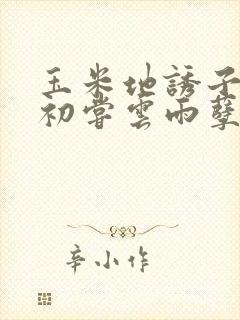 玉米地誘子
初嘗雲雨孽
辛小作